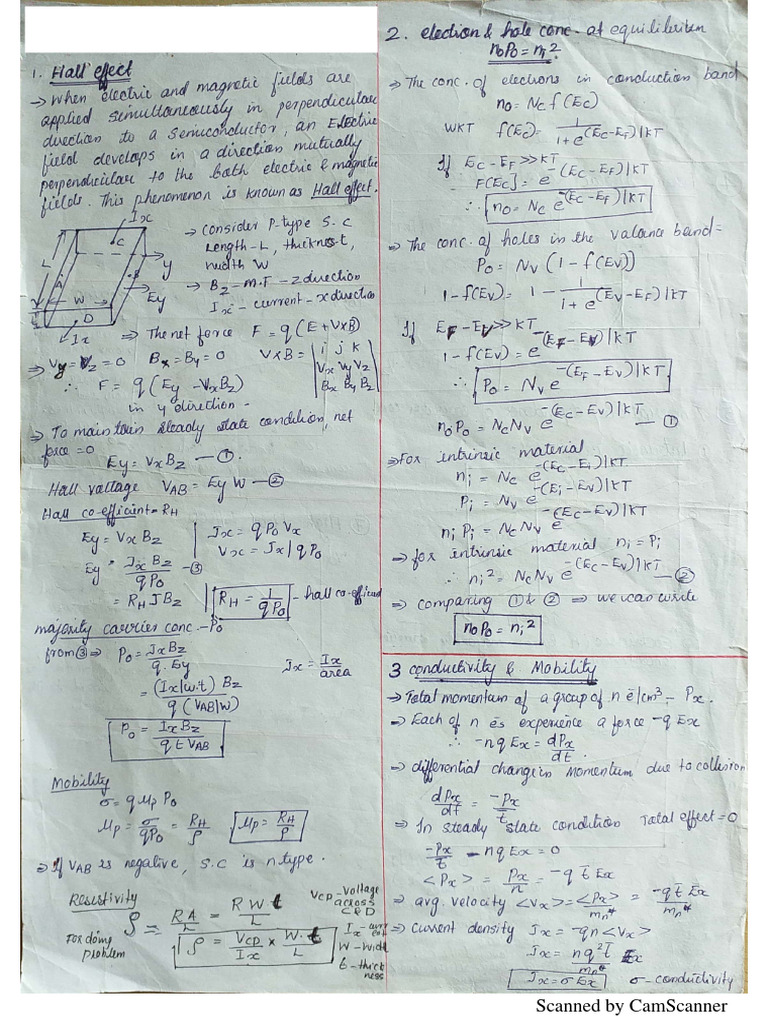 1. Hall effect
→ When electric and magnetic fields are
applied simultaneously in perpendicular
direction to a semiconductor, an Electric
field develops in a direction mutually
perpendicular to the both electric & magnetic
fields. This phenomenon is known as Hall effect.
Ix
C
L
A
W
B
D
y
Ey
Ix
→ consider P-type S.C
Length-L, thickness t,
width W
→ Bz - m.T - z direction
Ix - current - x direction
⇒ The net force F = q(E+V×B)
⇒ Vy = Vz = 0 Bx = By = 0 V×B = | i j k
Vx Vy Vz
Bx By Bz |
∴ F = q(Ey - VxBz)
in y direction -
⇒ To maintain steady state condition, net
force = 0
Ey = VxBz — ①.
Hall voltage VAB = Ey W — ②
Hall co-efficient = RH
Ey = Vx Bz | Jx = q P0 Vx
Vx = Jx | q P0
Ey = JxBz / qP0 — ③
= RH J Bz | RH = 1 / qP0 - hall co-efficient
majority carries conc. - P0
from ③ ⇒ P0 = JxBz / q. Ey Jx = Ix / area
= (Ix|w.t) Bz / q (VAB|W)
P0 = IxBz / q t VAB
Mobility
σ = q μp P0
μp = σ / qP0 = RH / ρ μp = RH / ρ
⇒ If VAB is negative, S.C is n type.
Resistivity
For doing
problem
ρ = RA / L = R W t / L
ρ = VCD / Ix × W. t / L
VCD - voltage
across
C & D
Ix - current
W - width
t - thickness
2. electron & hole conc. at equilibrium
n0P0 = ni²
→ The conc. of electrons in conduction band
n0 = Nc f(Ec)
WKT f(Ec) = 1 / 1+e^(Ec-EF)|KT
If Ec - EF >> KT
F(Ec] = e^-(Ec-EF)|KT
∴ n0 = Nc e^-(Ec-EF)|KT
→ The conc. of holes in the valance band =
P0 = Nv (1 - f(Ev))
1 - f(Ev) = 1 - 1 / 1+e^(Ev-EF)|KT
If EF - Ev >> KT
1 - f(Ev) = e^-(EF-Ev)|KT
∴ P0 = Nv e^-(EF-Ev)|KT
n0P0 = NcNv e^-(Ec-Ev)|KT — ①
⇒ For intrinsic material
ni = Nc e^-(Ec-Ei)|KT
Pi = Nv e^-(Ei-Ev)|KT
ni Pi = NcNv e^-(Ec-Ev)|KT
⇒ for intrinsic material ni = Pi
∴ ni² = NcNv e^-(Ec-Ev)|KT — ②
⇒ comparing ① & ② ⇒ we can write
n0P0 = ni²
3 conductivity & Mobility
→ Total momentum of a group of n ē/cm³ - Px.
→ Each of n ēs experience a force -qEx
∴ -nqEx = dPx / dt
→ differential change in momentum due to collision
dPx / dt = -Px / t̄
⇒ In steady state condition Total effect = 0
-Px / t̄ - nqEx = 0
<Px> = Px / n = -q t̄ Ex
⇒ avg. velocity <Vx> = <Px> / mn* = -q t̄ Ex / mn*
⇒ current density Jx = -qn<Vx>
Jx = nq² t̄ / mn* Ex
Jx = σEx σ - conductivity
Scanned by CamScanner